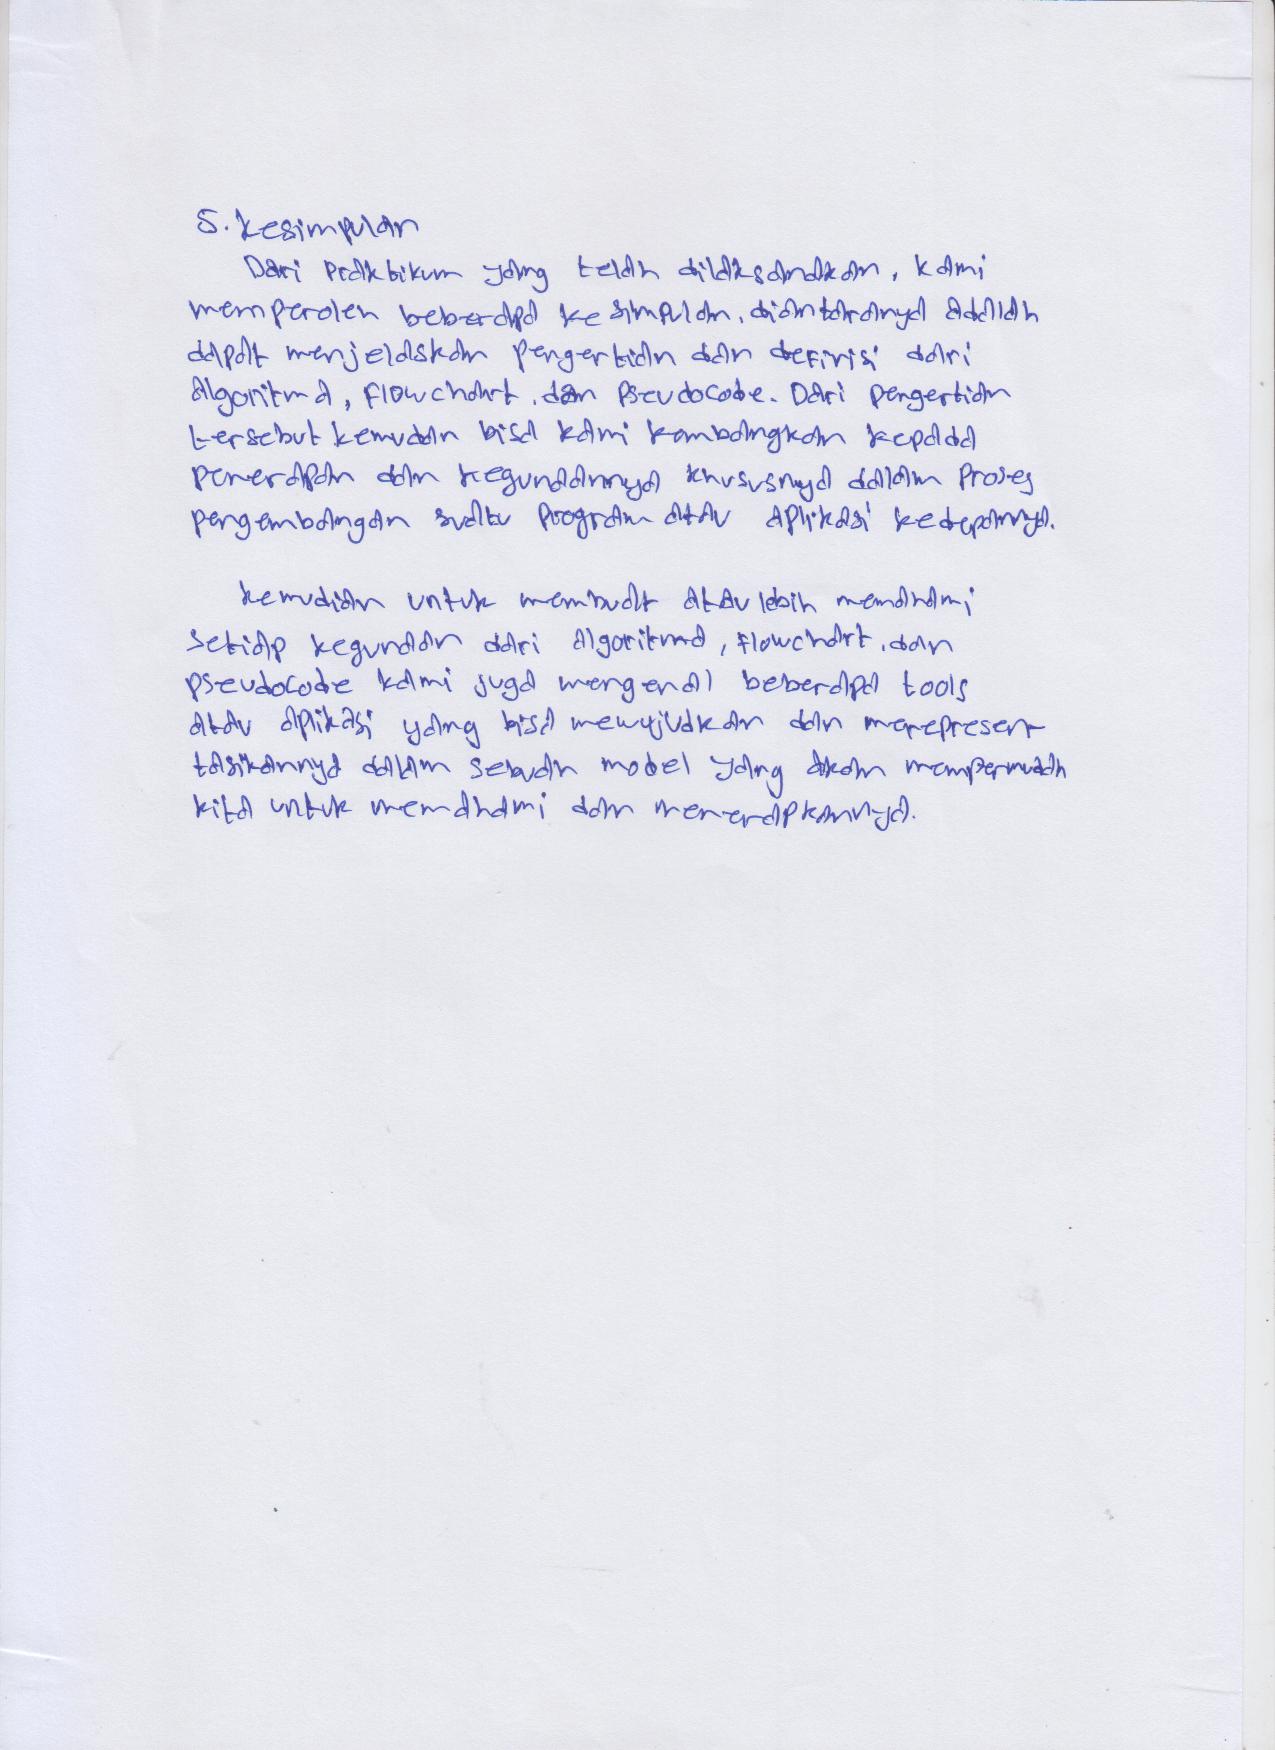 5. Kesimpulan
Dari Praktikum yang telah dilaksanakan, kami
memperoleh beberapa kesimpulan, diantaranya adalah
dapat menjelaskan pengertian dan definisi dari
algoritma, flowchart, dan pseudocode. Dari pengertian
tersebut kemudan bisa kami kembangkan kepada
penerapan dan kegunaannya khususnya dalam proses
pengembangan suatu program atau aplikasi kedepannya.
Kemudian untuk membuat atau lebih memahami
setiap kegunaan dari algoritma, flowchart, dan
pseudocode kami juga mengenal beberapa tools
atau aplikasi yang bisa mewujudkan dan merepresen
tasikannya dalam sebuah model yang akan mempermudah
kita untuk memahami dan menerapkannya.